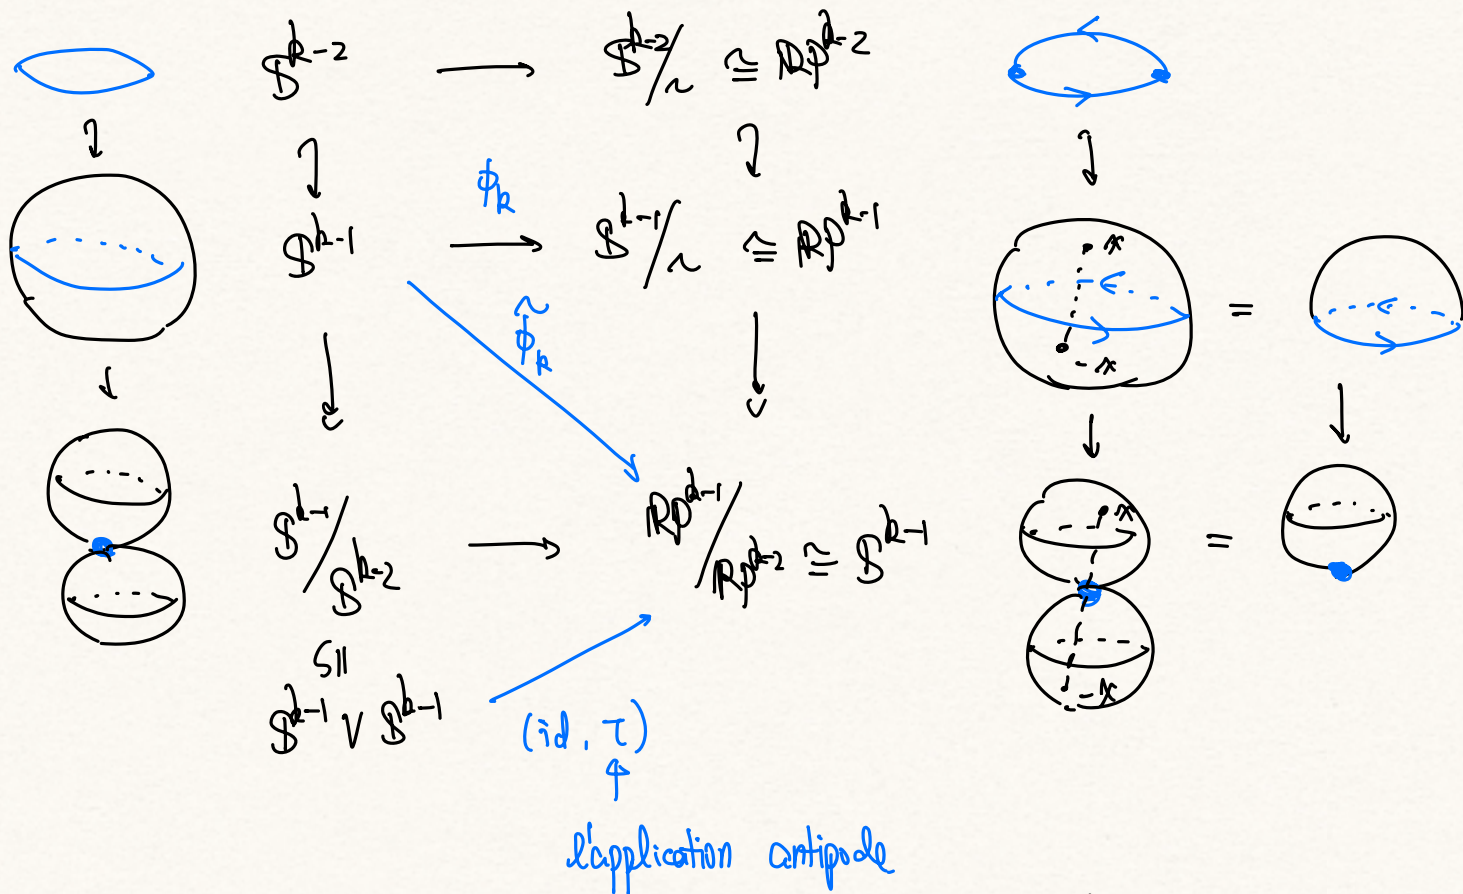 𝕊^{k-2} ⟶ 𝕊^{k-2}/∼ ≅ ℝP^{k-2}
ϕ_k
𝕊^{k-1} ⟶ 𝕊^{k-1}/∼ ≅ ℝP^{k-1}
x
=
-x
ϕ̃_k
𝕊^{k-1}/𝕊^{k-2} ⟶ ℝP^{k-1}/ℝP^{k-2} ≅ 𝕊^{k-1}
x
=
-x
≅
𝕊^{k-1} ∨ 𝕊^{k-1}
(id, τ)
↑
l'application antipode